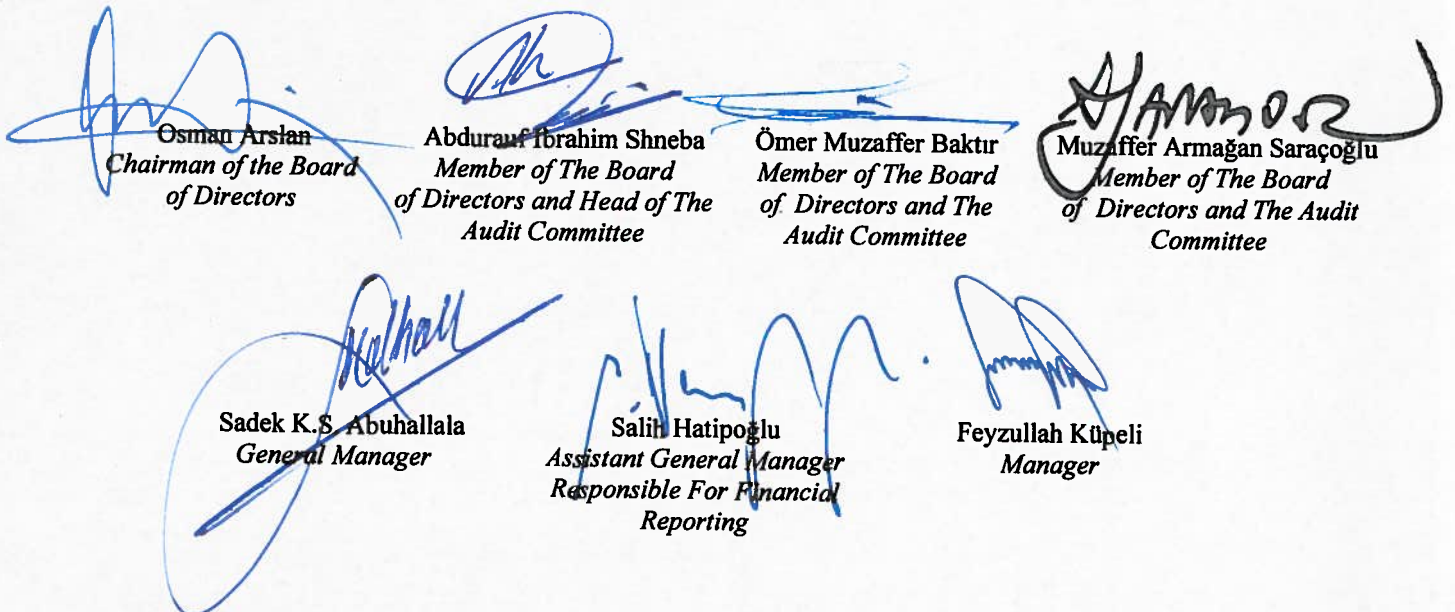 Osman Arslan
Chairman of the Board
of Directors
Abdurauf Ibrahim Shneba
Member of The Board
of Directors and Head of The
Audit Committee
Ömer Muzaffer Baktır
Member of The Board
of Directors and The
Audit Committee
Muzaffer Armağan Saraçoğlu
Member of The Board
of Directors and The Audit
Committee
Sadek K.S. Abuhallala
General Manager
Salih Hatipoğlu
Assistant General Manager
Responsible For Financial
Reporting
Feyzullah Küpeli
Manager